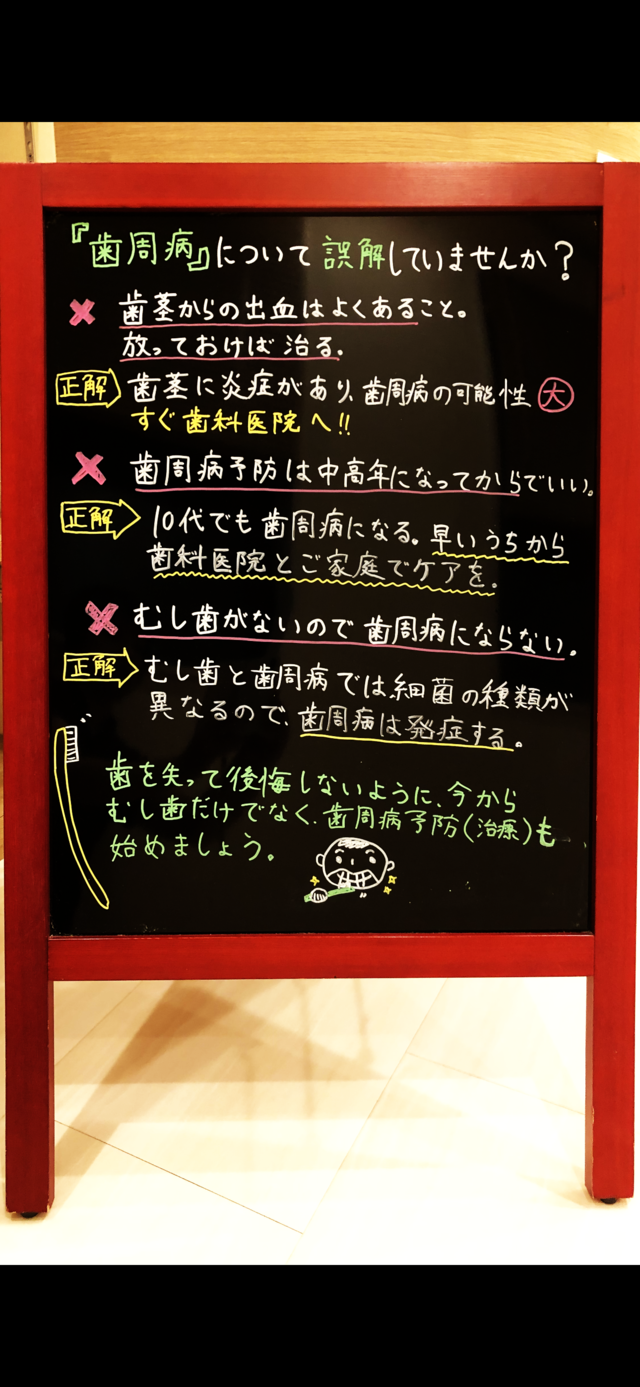 『歯周病』について誤解していませんか？
× 歯茎からの出血はよくあること。
放っておけば治る。
正解 歯茎に炎症があり、歯周病の可能性 大
すぐ歯科医院へ!!
× 歯周病予防は中高年になってからでいい。
正解 10代でも歯周病になる。早いうちから
歯科医院とご家庭でケアを。
× むし歯がないので歯周病にならない。
正解 むし歯と歯周病では細菌の種類が
異なるので、歯周病は発症する。
歯を失って後悔しないように、今から
むし歯だけでなく、歯周病予防(治療)も
始めましょう。